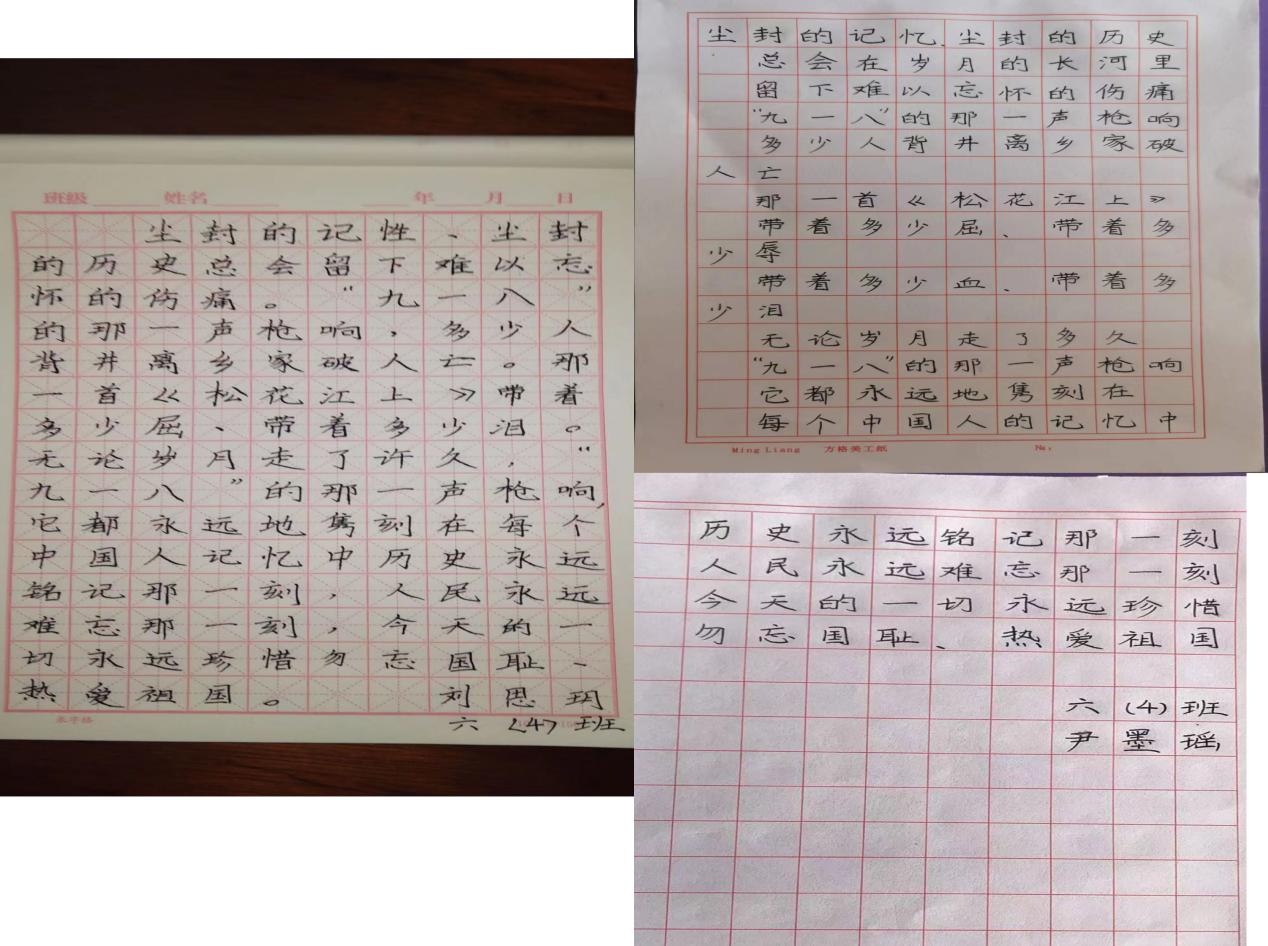 班级 姓名 年 月 日
尘封的记性、尘封
的历史总会留下难以忘
怀的伤痛。“九一八”
的那一声枪响，多少人
背井离乡家破人亡。那
一首《松花江上》带着
多少屈、带着多少泪。
无论岁月走了许久，“
九一八”的那一声枪响，
它都永远地隽刻在每个
中国人记忆中历史永远
铭记那一刻，人民永远
难忘那一刻，今天的一
切永远珍惜勿忘国耻、
热爱祖国。 刘思玥
六（4）班
米字格
尘封的记忆、尘封的历史
总会在岁月的长河里
留下难以忘怀的伤痛
“九一八”的那一声枪响
多少人背井离乡家破
人亡
那一首《松花江上》
带着多少屈、带着多
少辱
带着多少血、带着多
少泪
无论岁月走了多久
“九一八”的那一声枪响
它都永远地隽刻在
每个中国人的记忆中
Ming Liang 方格美工纸 №:
历史永远铭记那一刻
人民永远难忘那一刻
今天的一切永远珍惜
勿忘国耻、热爱祖国
六（4）班
尹墨瑶